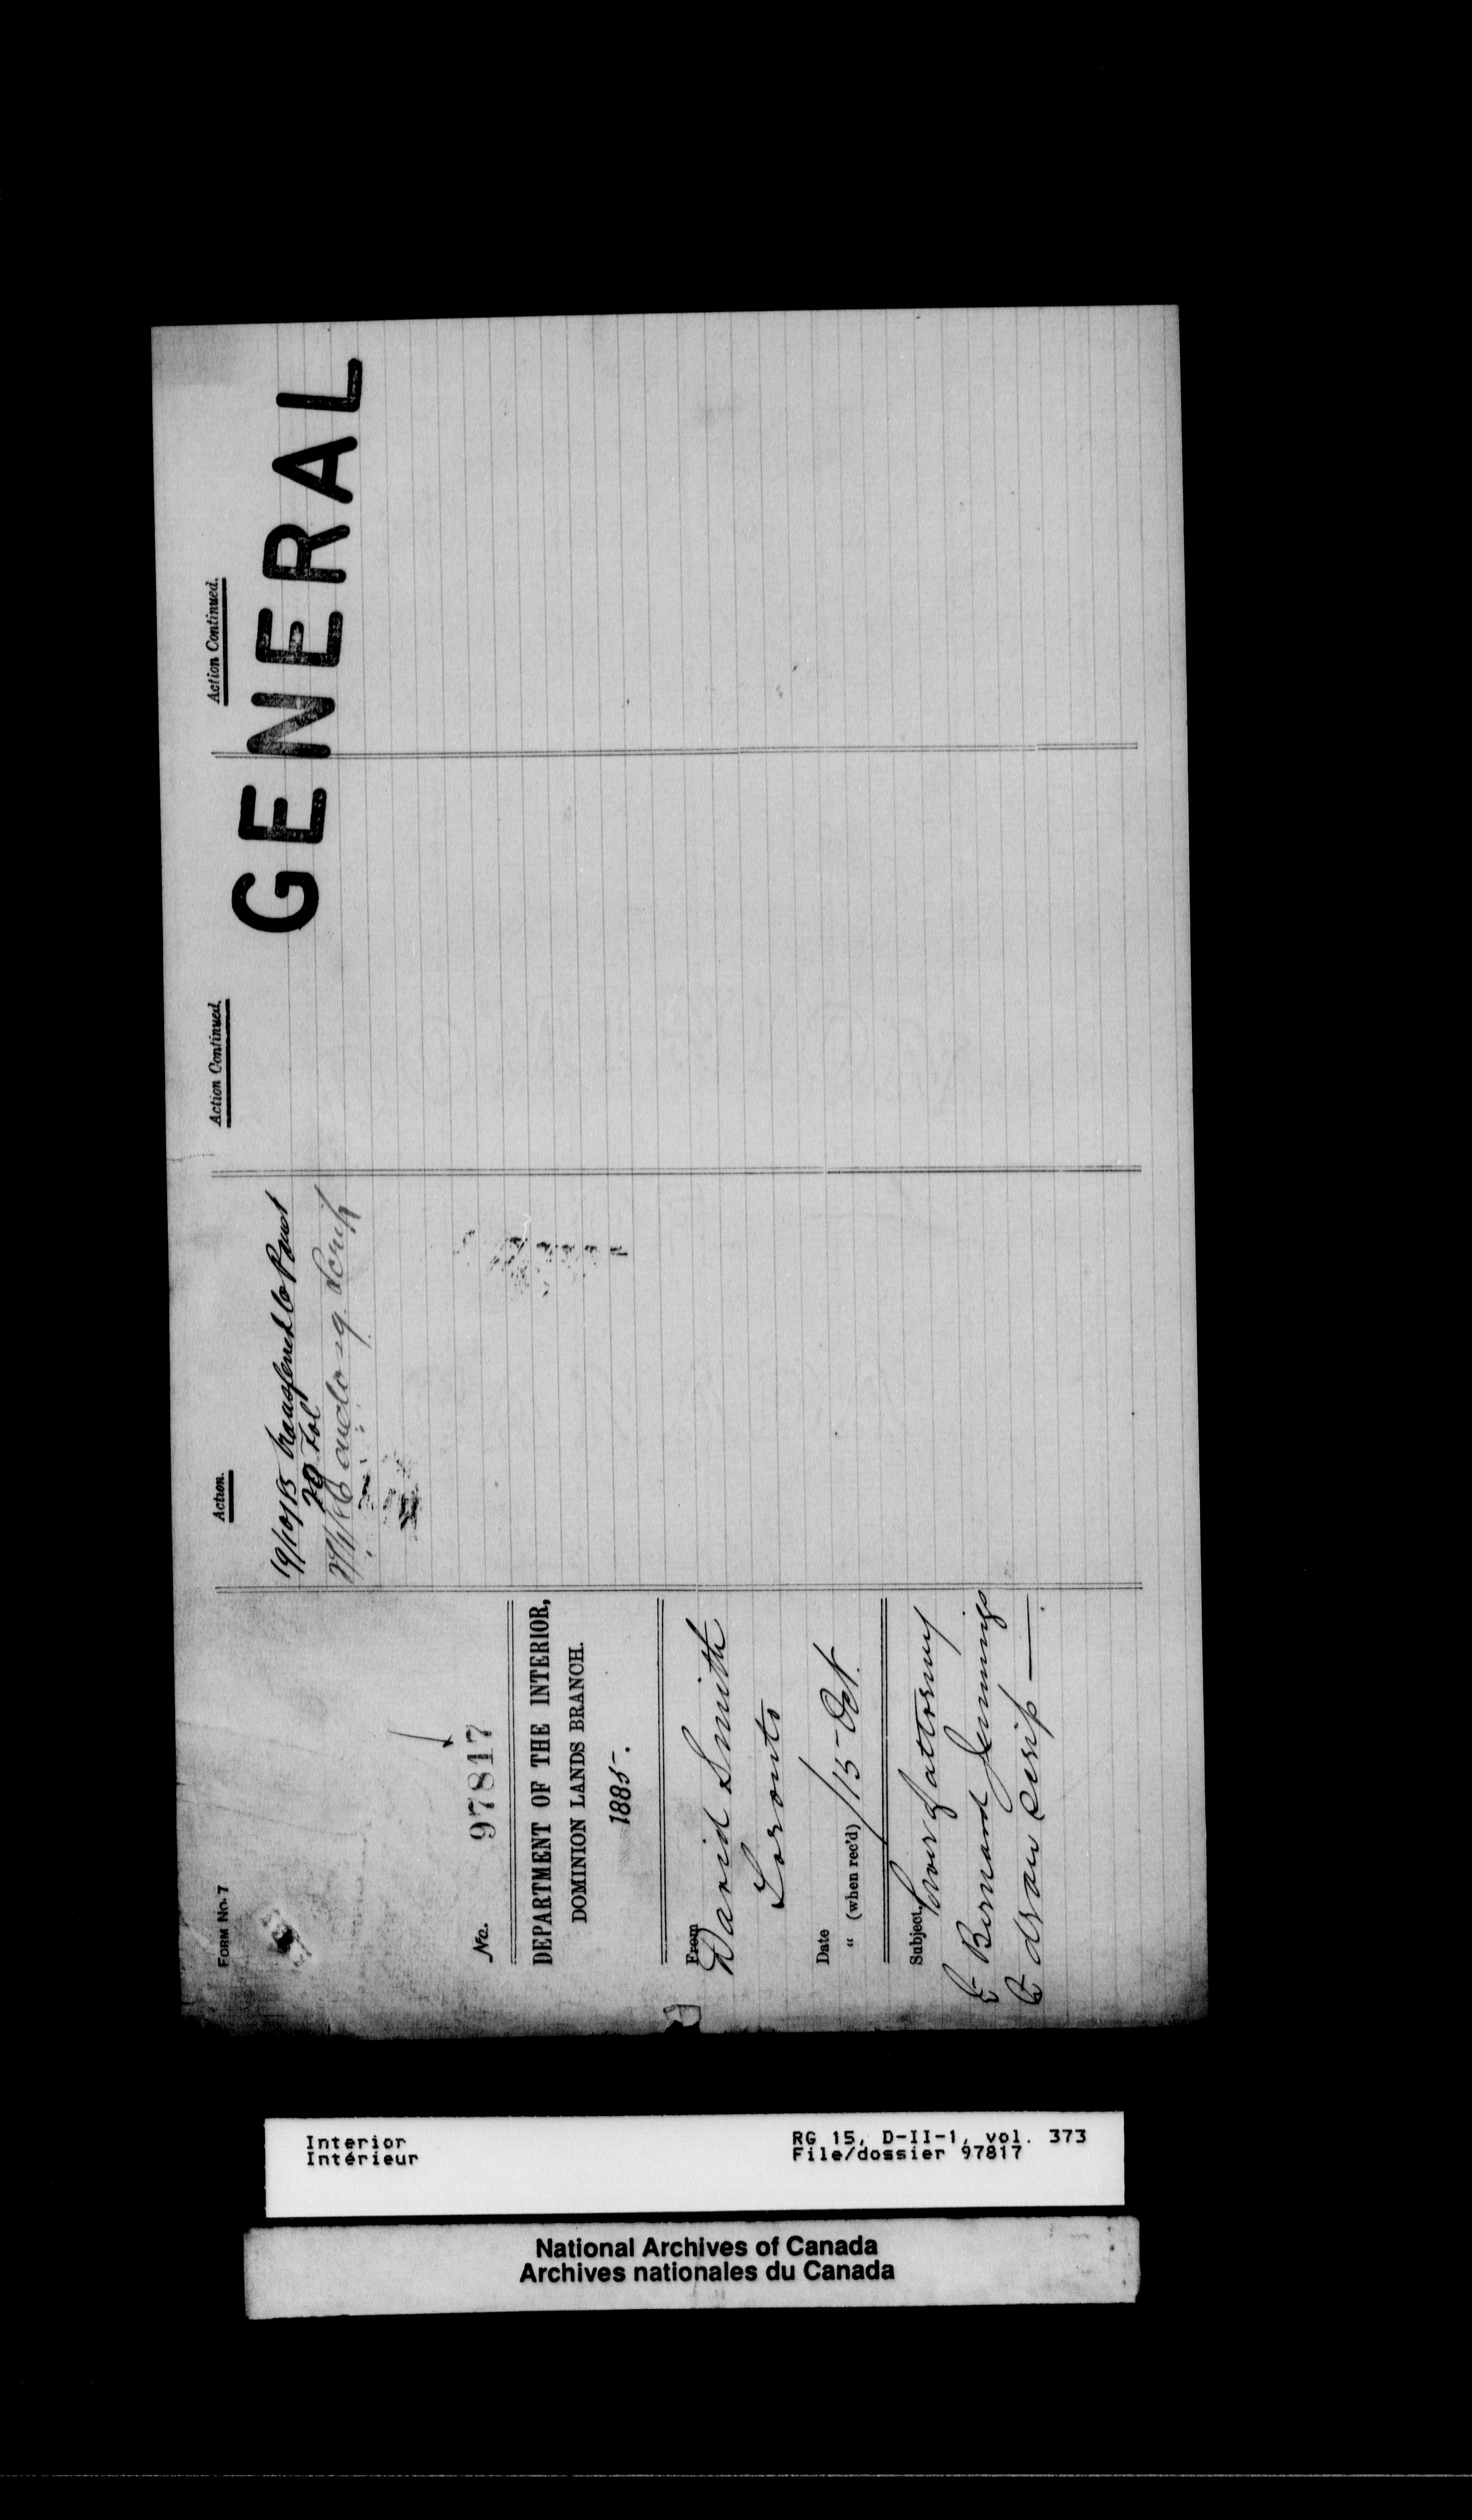 FORM No. 7
No. 97817
DEPARTMENT OF THE INTERIOR,
DOMINION LANDS BRANCH.
1885.
From
David Smith
Toronto
Date
" (when rec'd) 15 Oct.
Subject,
Power of attorney
to Bernard Jennings
to draw scrip
Action.
Action Continued.
Action Continued.
GENERAL
Interior
Intérieur
RG 15, D-II-1, vol. 373
File/dossier 97817
National Archives of Canada
Archives nationales du Canada